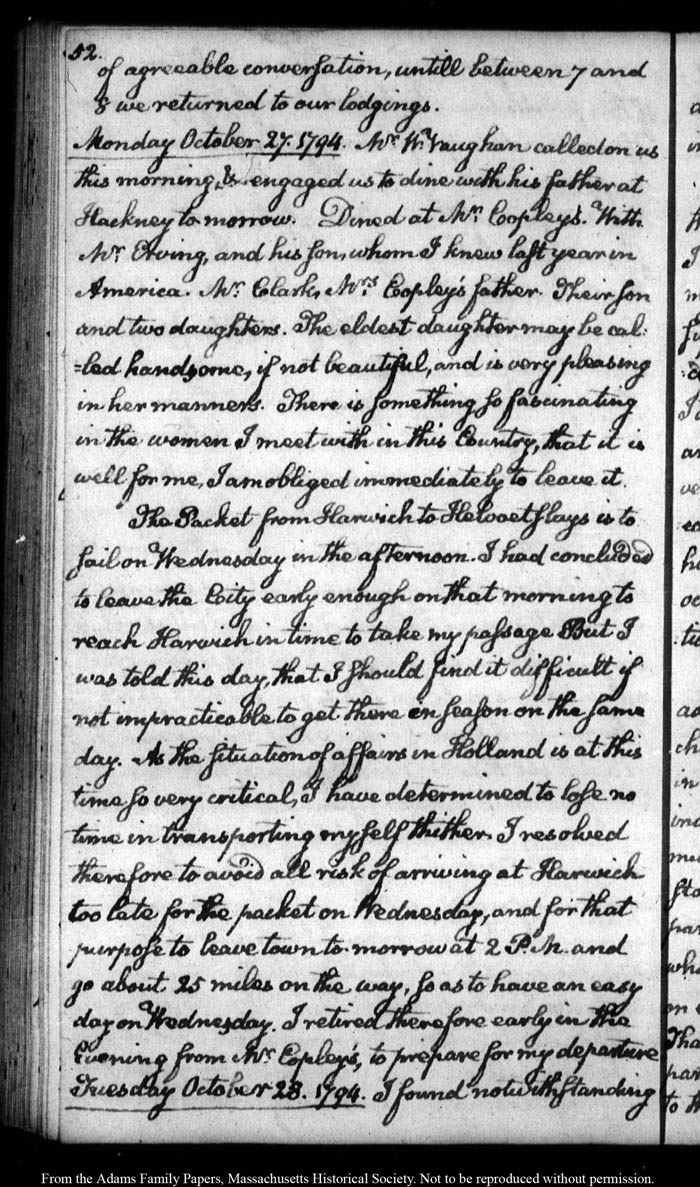 52.
of agreeable conversation, untill between 7 and
8 we returned to our lodgings.
Monday October 27. 1794. Mr. W. Vaughan called on us
this morning, & engaged us to dine with his father at
Hackney to-morrow. Dined at Mr. Copley's. With
Mr. Erving, and his son, whom I knew last year in
America. Mr. Clark, Mrs. Copley's father. Their son
and two daughters. The eldest daughter may be cal:
=led handsome, if not beautiful, and is very pleasing
in her manners. There is something so fascinating
in the women I meet with in this Country, that it is
well for me, I am obliged immediately to leave it.
The Packet from Harwich to Helvoetslays is to
sail on Wednesday in the afternoon. I had concluded
to leave the City early enough on that morning to
reach Harwich in time to take my passage But I
was told this day, that I should find it difficult if
not impracticable to get there in season on the same
day. As the situation of affairs in Holland is at this
time so very critical, I have determined to lose no
time in transporting myself thither. I resolved
therefore to avoid all risk of arriving at Harwich
too late for the packet on Wednesday, and for that
purpose to leave town to-morrow at 2 P.M. and
go about 25 miles on the way, so as to have an easy
day on Wednesday. I retired therefore early in the
Evening from Mr. Copley's, to prepare for my departure
Tuesday October 28. 1794. I found notwithstanding
From the Adams Family Papers, Massachusetts Historical Society. Not to be reproduced without permission.